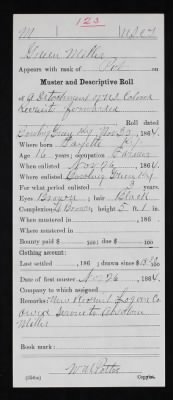 123
M U.S.C.T.
Green Miller
Appears with rank of Pvt. on
Muster and Descriptive Roll
of a Detachment of U.S. Colored
Recruits forwarded
Roll dated
Bowling Green Ky, Nov 30, 1864.
Where born Fayette Ky
Age 16 years; occupation Farmer
When enlisted Nov 26, 1864.
Where enlisted Bowling Green Ky
For what period enlisted 3 years.
Eyes Brown; hair Black
Complexion Brown; height 5 ft. 1 in.
When mustered in , 186 .
Where mustered in
Bounty paid $ 100; due $ 100
Clothing account:
Last settled , 186 ; drawn since $ 100
Date of first muster Nov 26, 1864.
Company to which assigned
Remarks: New Recruit Logan Co
owed Service to
Miller
Book mark:
(356c) Copyist.